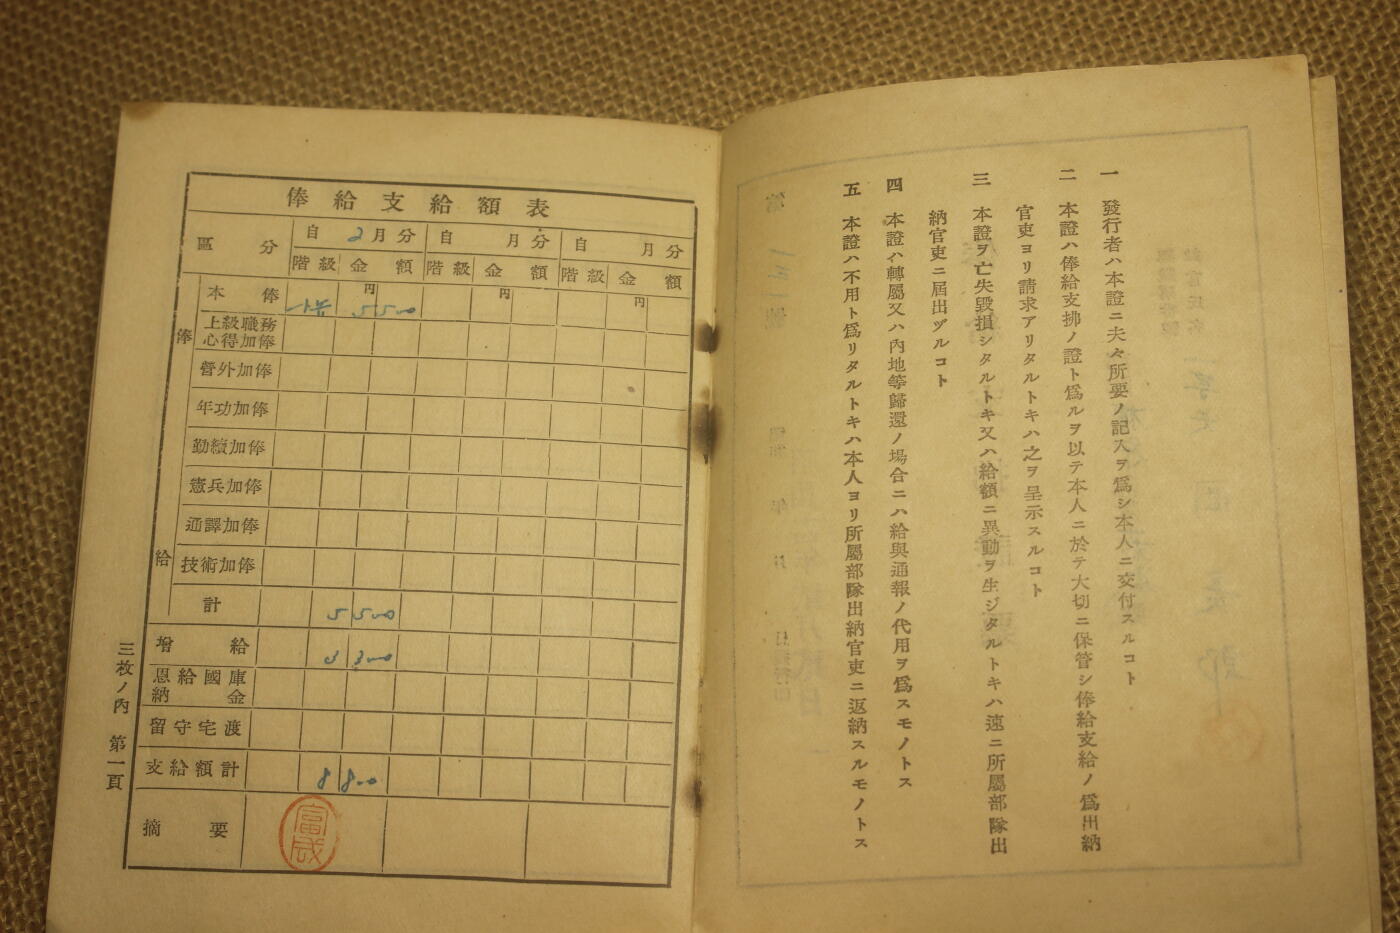 一 發行者ハ本證ニ夫々所要ノ記入ヲ爲シ本人ニ交付スルコト
二 本證ハ俸給支拂ノ證ト爲ルヲ以テ本人ニ於テ大切ニ保管シ俸給支給ノ爲出納
官吏ヨリ請求アリタルトキハ之ヲ呈示スルコト
三 本證ヲ亡失毀損シタルトキ又ハ給額ニ異動ヲ生ジタルトキハ速ニ所屬部隊出
納官吏ニ屆出ヅルコト
四 本證ハ轉屬又ハ內地等歸還ノ場合ニハ給與通報ノ代用ヲ爲スモノトス
五 本證ハ不用ト爲リタルトキハ本人ヨリ所屬部隊出納官吏ニ返納スルモノトス
俸給支給額表
區分 自2月分 自 月分 自 月分
階級 金額 階級 金額 階級 金額
俸給
本俸 円 5500 円 円
上級職務心得加俸
營外加俸
年功加俸
勤續加俸
憲兵加俸
通譯加俸
技術加俸
計 5500
增給 3300
恩給國庫納金
留守宅渡
支給額計 8800
摘要
三枚ノ內 第一頁